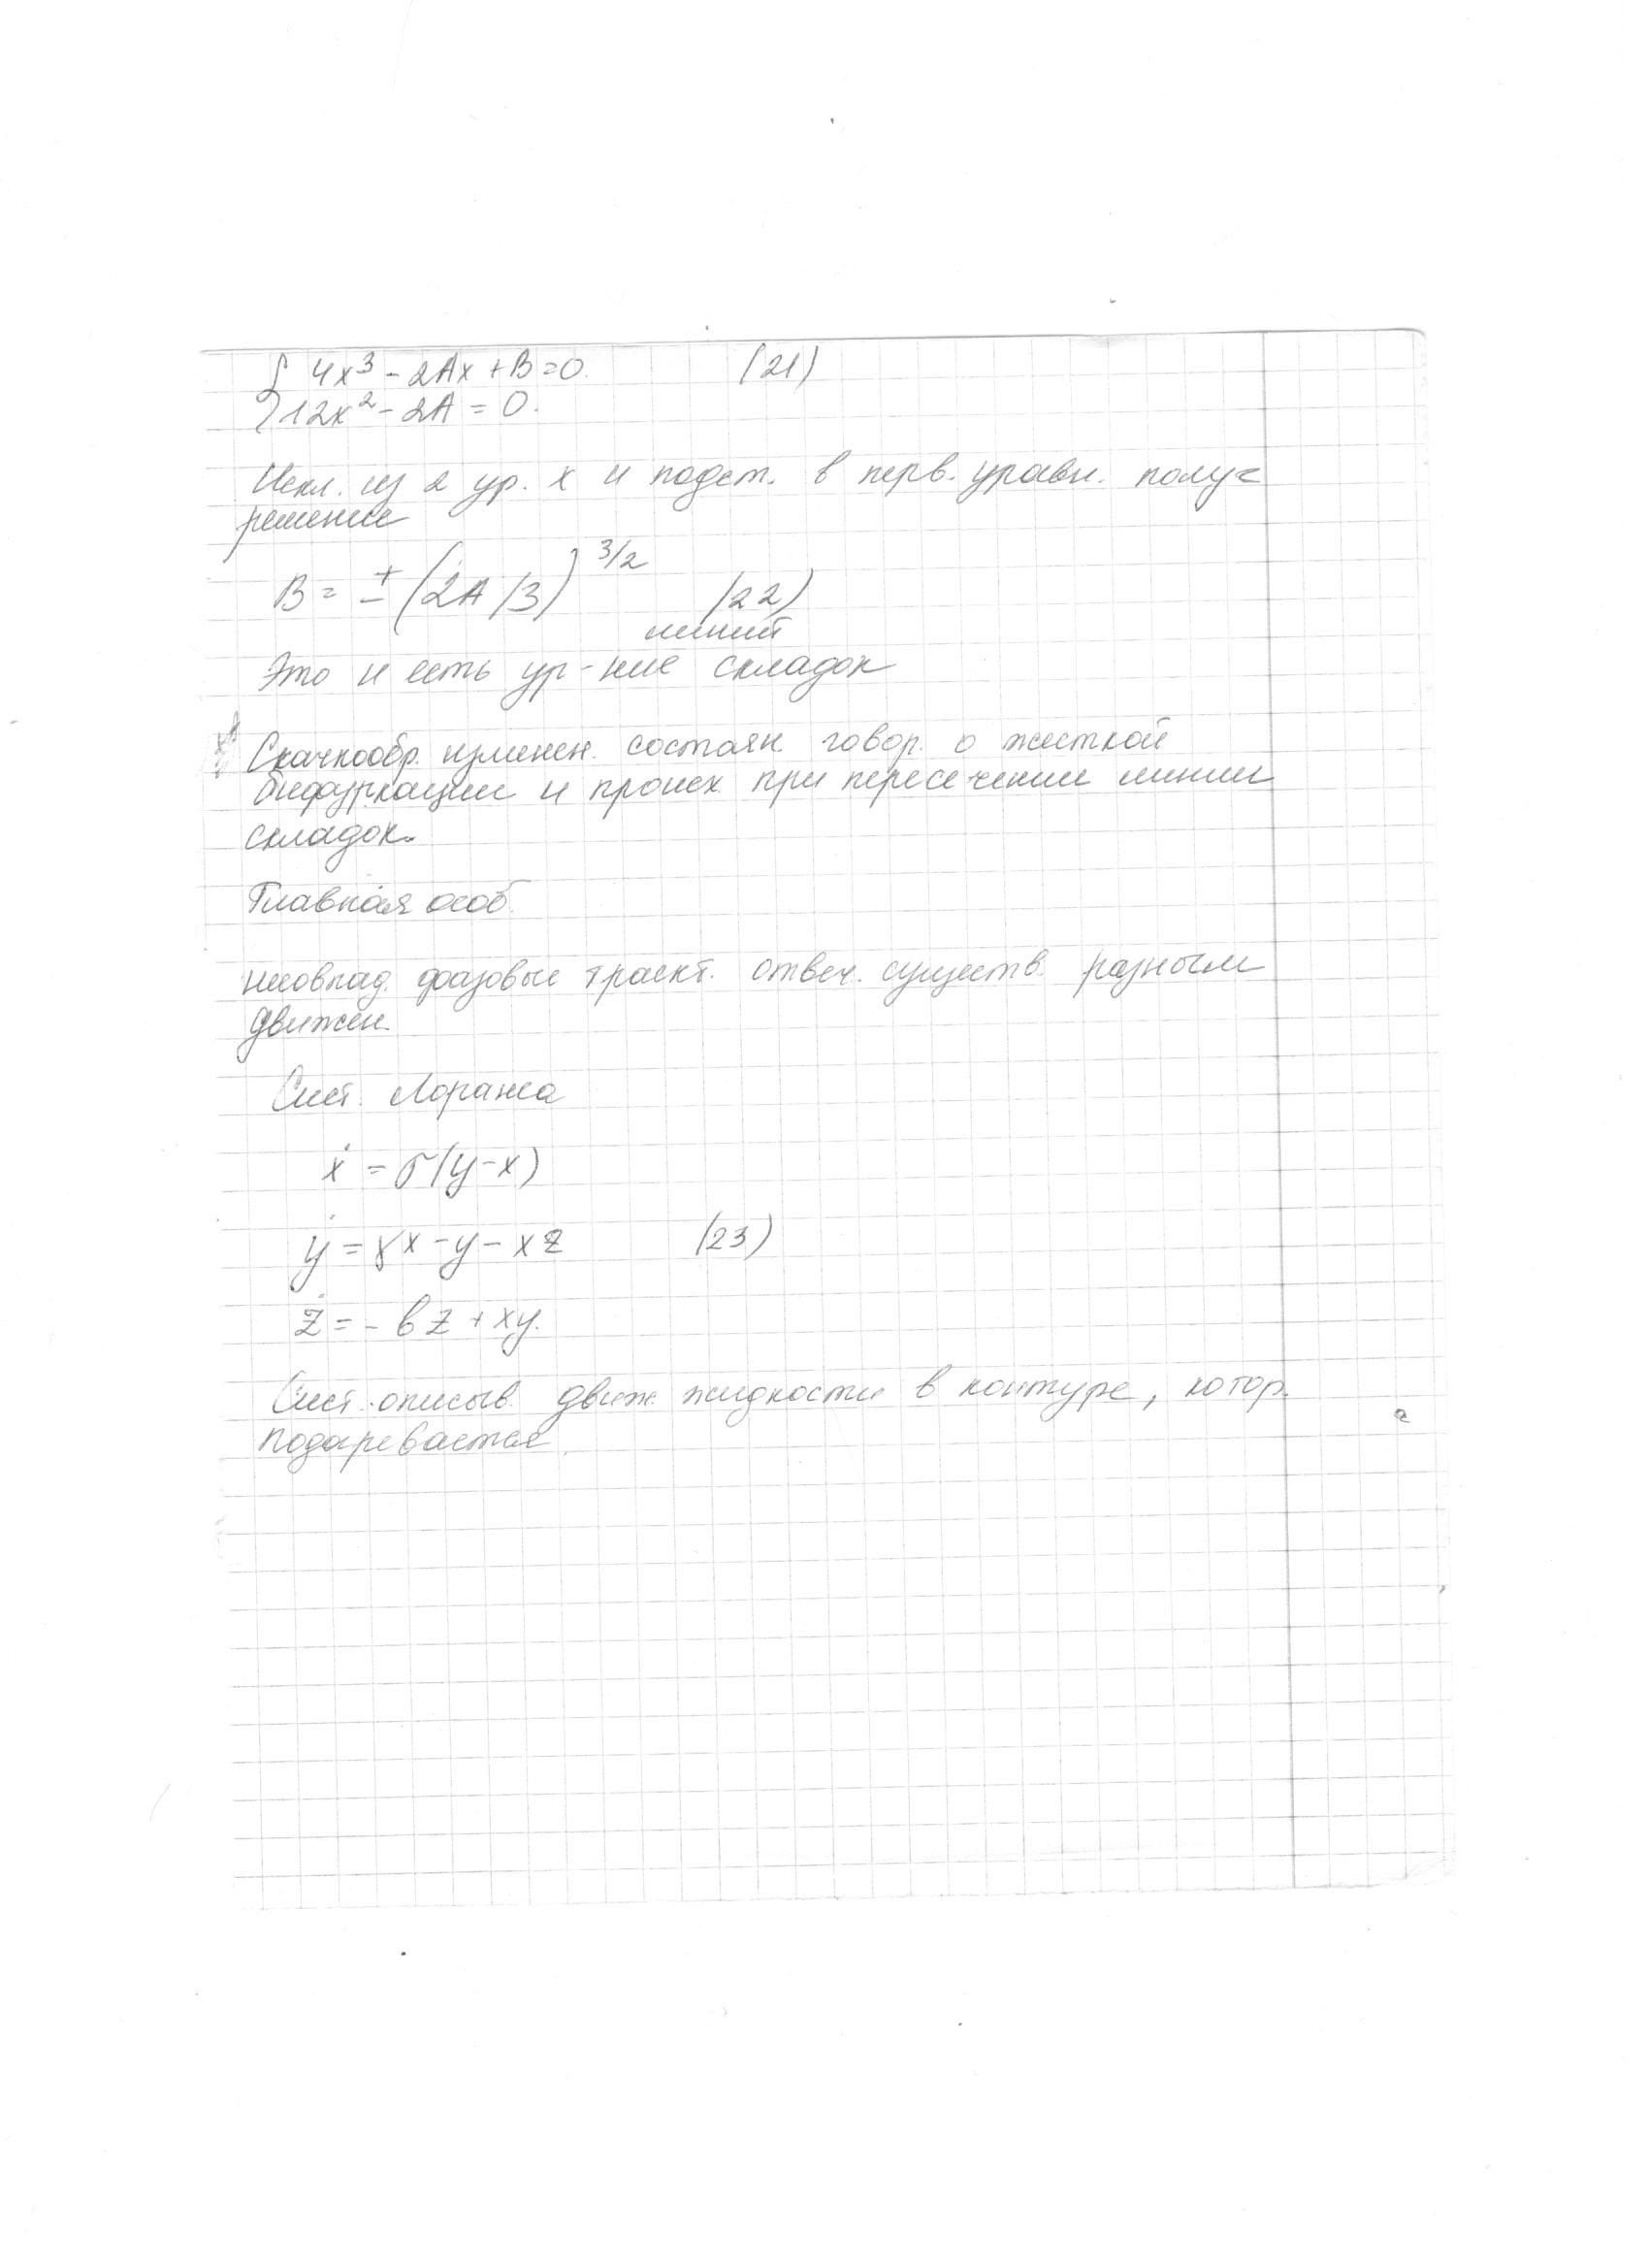 { 4x³ - 2Ax + B = 0. (21)
12x² - 2A = 0.
Искл. из 2 ур. x и подст. в перв. уравн. получ
решение
B = ± (2A/3)^3/2 (22)
линий
Это и есть ур-ние складок
Скачкообр. изменен. состоян. говор. о жесткой
бифуркации и происх при пересечении линии
складок.
Главная особ.
несовпад. фазовые траект. отвеч. существ. разным
движен.
Сист. Лоранса
ẋ = σ(y-x)
ẏ = γx - y - xz (23)
ż = - bz + xy.
Сист. описыв. движ. жидкости в контуре, котор.
подогревается.